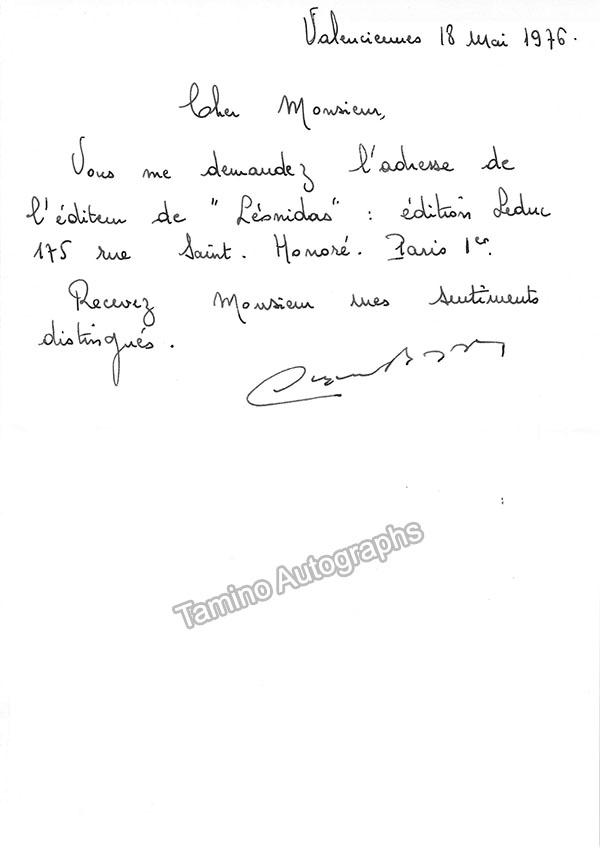 Valenciennes 18 Mai 1976.
Cher Monsieur,
Vous me demandez l'adresse de
l'éditeur de "Léonidas" : édition Leduc
175 rue Saint. Honoré. Paris 1er.
Recevez Monsieur mes sentiments
distingués.
Tamino Autographs